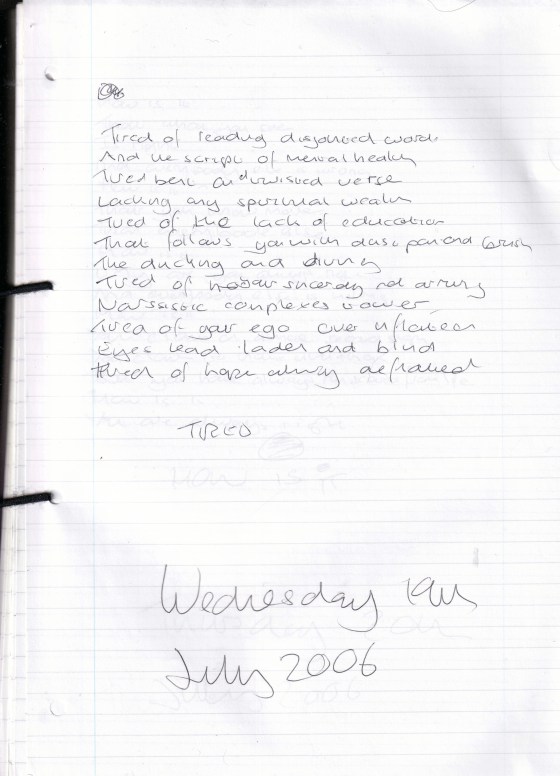 Tired of reading disjointed words
And the script of mental health
Tired bent and twisted verse
Lacking any spiritual wealth
Tired of the lack of education
That follows you with dust pan and brush
The ducking and diving
Tired of sincerity not arriving
Narssistic complexes
Tired of your ego over inflated
Eyes lead laden and blind
Tired of hope always deflated
TIRED
Wednesday 19th
July 2006